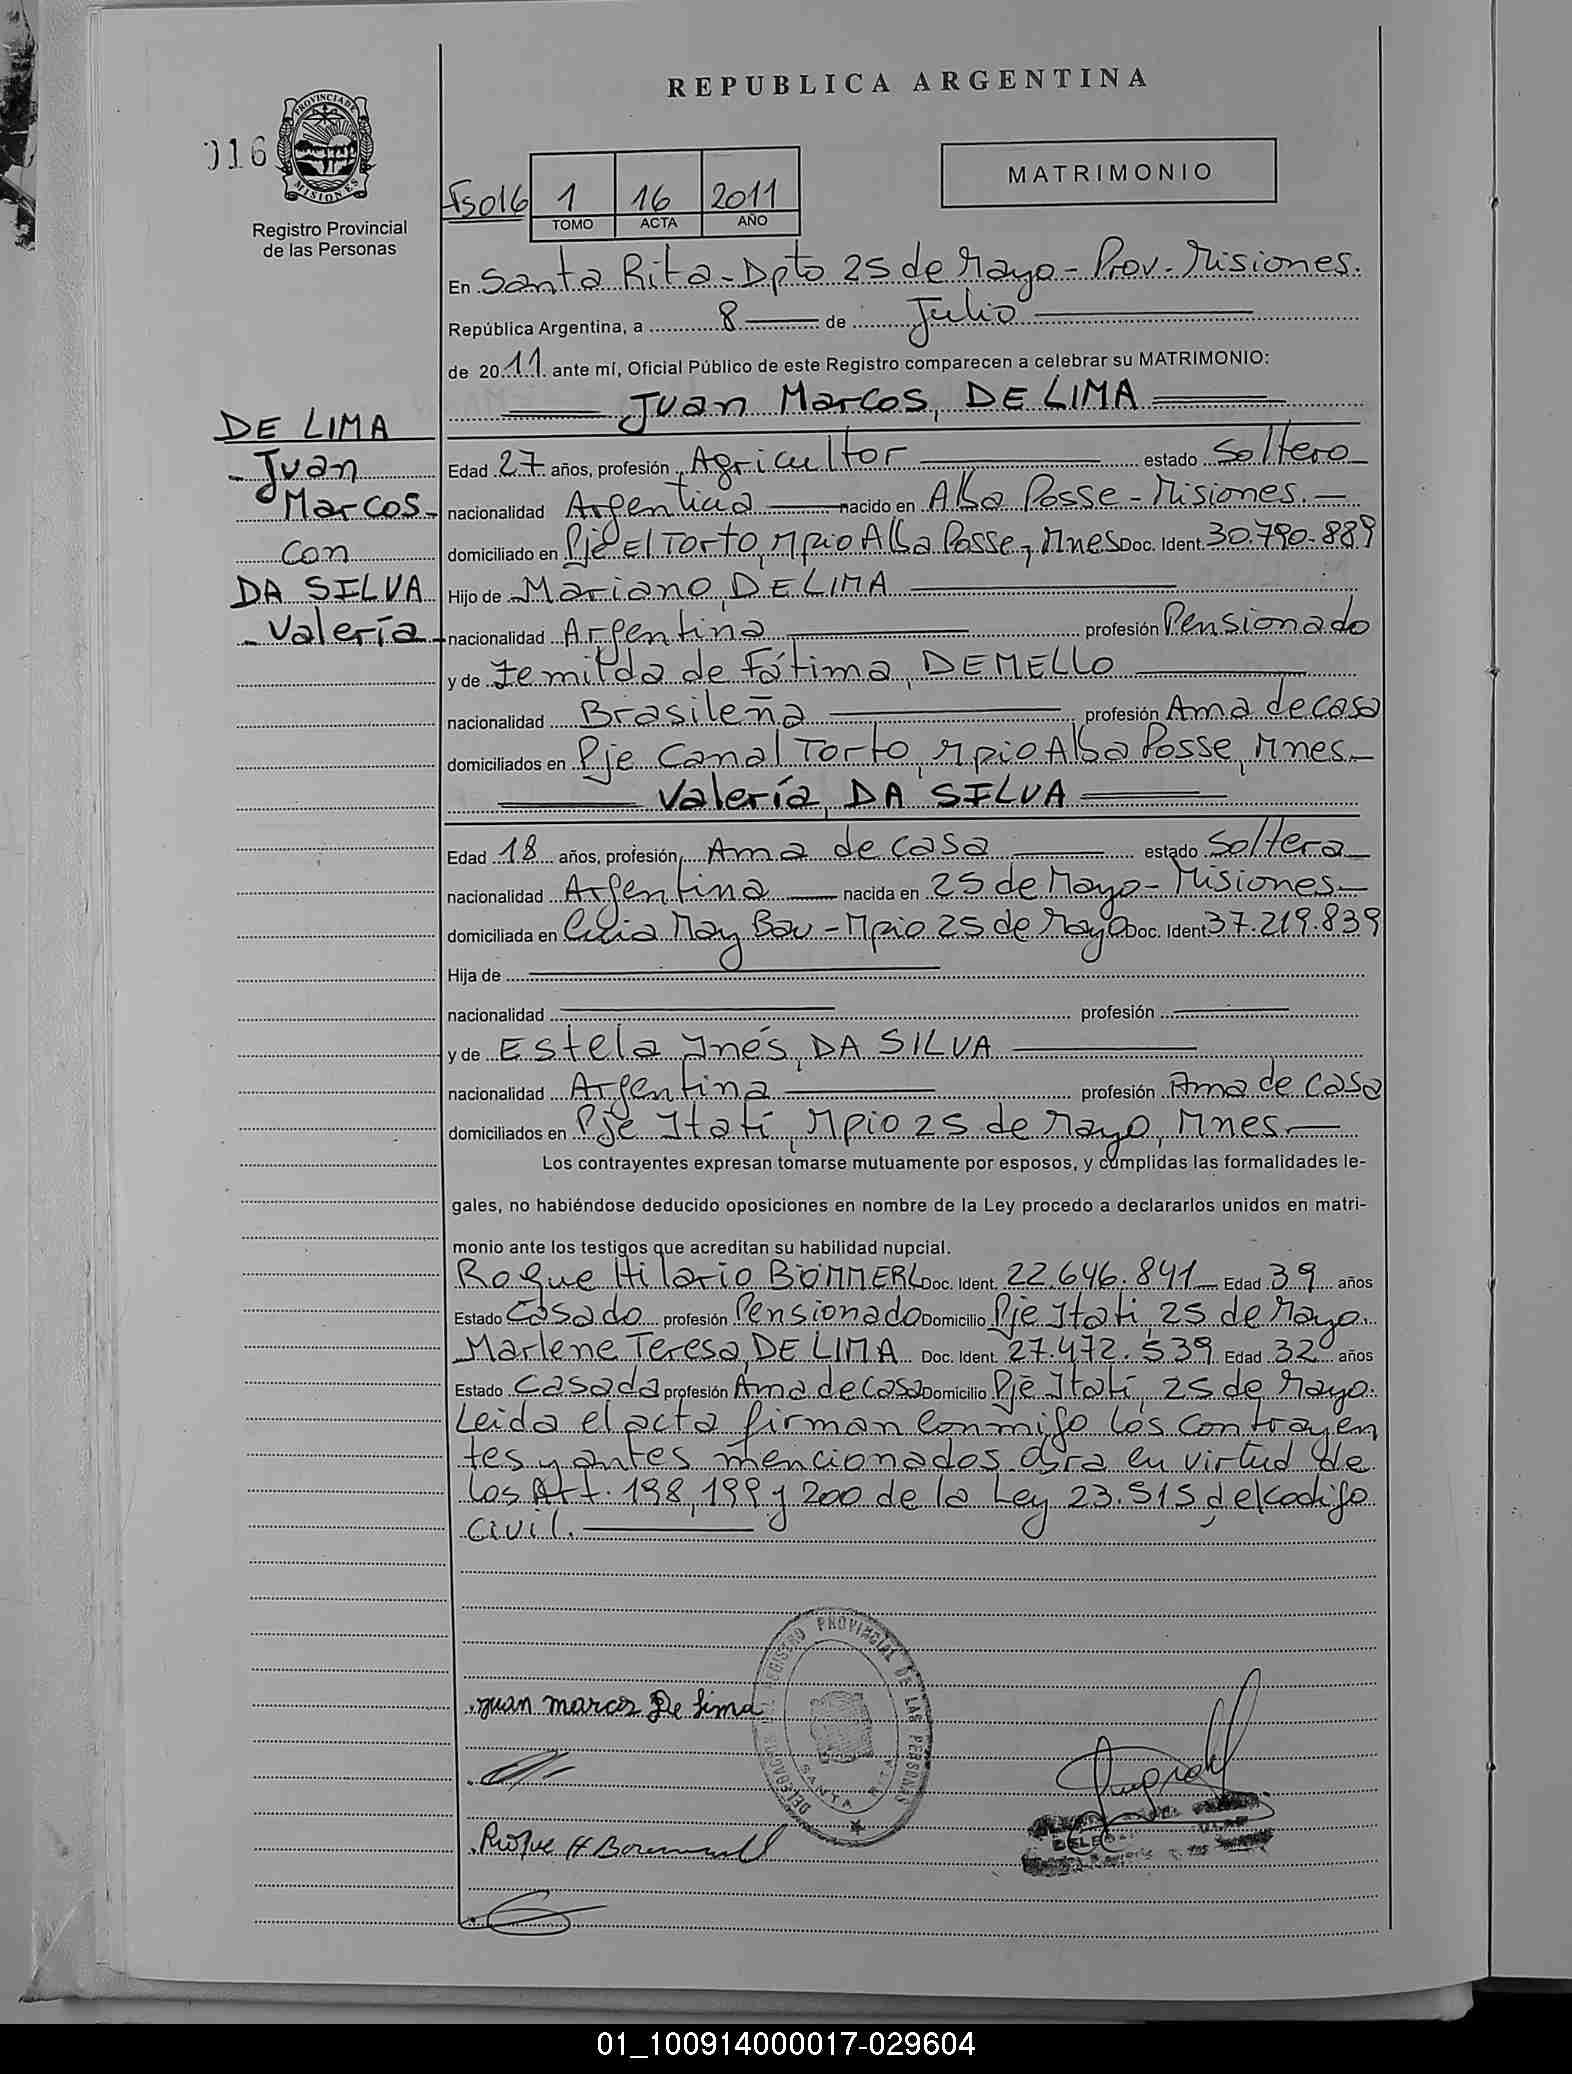 REPUBLICA ARGENTINA
016
PROVINCIA DE
MISIONES
Registro Provincial
de las Personas
MATRIMONIO
Fs 016 1 16 2011
TOMO ACTA AÑO
En Santa Rita - Dpto 25 de Mayo - Prov. Misiones.
República Argentina, a 8 de Julio
de 2011 ante mí, Oficial Público de este Registro comparecen a celebrar su MATRIMONIO:
Juan Marcos, DE LIMA
DE LIMA
- Juan
Marcos -
con
DA SILVA
- Valería -
Edad 27 años, profesión Agricultor estado Soltero
nacionalidad Argentina nacido en Alba Posse - Misiones.
domiciliado en Pje El Torto, Mpio Alba Posse, Mnes Doc. Ident. 30.790.889
Hijo de Mariano, DE LIMA
nacionalidad Argentina profesión Pensionado
y de Zemilda de Fátima, DEMELLO
nacionalidad Brasileña profesión Ama de casa
domiciliados en Pje Canal Torto, Mpio Alba Posse, Mnes
Valería, DA SILVA
Edad 18 años, profesión Ama de casa estado Soltera
nacionalidad Argentina nacida en 25 de Mayo - Misiones
domiciliada en May Bau - Mpio 25 de Mayo Doc. Ident. 37.219.839
Hija de
nacionalidad profesión
y de Estela Inés, DA SILVA
nacionalidad Argentina profesión Ama de casa
domiciliados en Pje Itatí, Mpio 25 de Mayo, Mnes
Los contrayentes expresan tomarse mutuamente por esposos, y cumplidas las formalidades le-
gales, no habiéndose deducido oposiciones en nombre de la Ley procedo a declararlos unidos en matri-
monio ante los testigos que acreditan su habilidad nupcial.
Roque Hilario BÖMMERL Doc. Ident. 22.646.841 Edad 39 años
Estado Casado profesión Pensionado Domicilio Pje Itatí, 25 de Mayo.
Marlene Teresa, DE LIMA Doc. Ident. 27.472.539 Edad 32 años
Estado Casada profesión Ama de casa Domicilio Pje Itatí, 25 de Mayo.
Leida el acta firman conmigo los contrayen
tes y antes mencionados en virtud de
los Art. 198, 199 y 200 de la Ley 23.515, del codigo
civil.
DELEGACION DEL REGISTRO PROVINCIAL DE LAS PERSONAS
SANTA RITA
Juan marcos De lima
Roque H
01_100914000017-029604